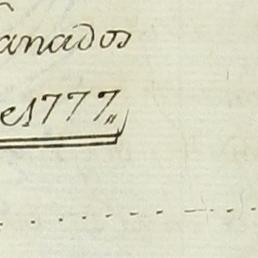 Ganados
de 1777,,